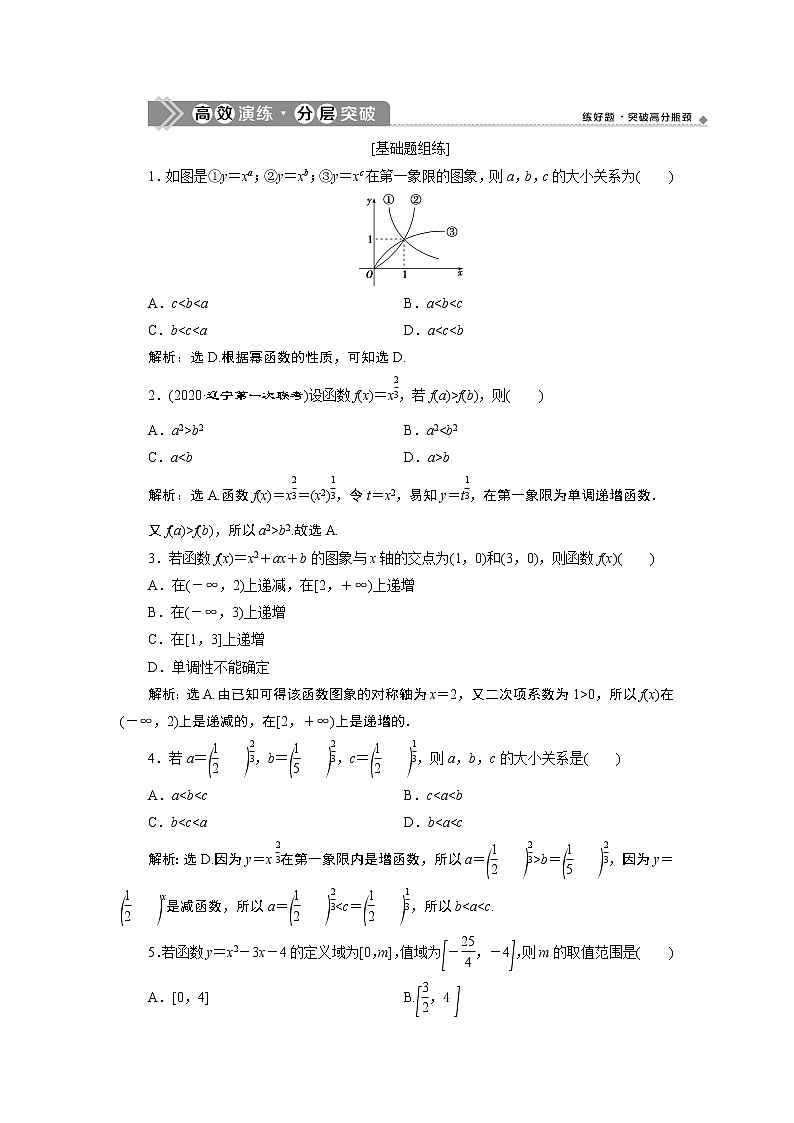 高效演练·分层突破 练好题·突破高分瓶颈
[基础题组练]
1.如图是①y=xᵃ;②y=xᵇ;③y=xᶜ在第一象限的图象,则a,b,c的大小关系为(  )
y ① ②
1 ③
O 1 x
A.c<b<a B.a<b<c
C.b<c<a D.a<c<b
解析:选D.根据幂函数的性质,可知选D.
2.(2020·辽宁第一次联考)设函数f(x)=x^(2/3),若f(a)>f(b),则(  )
A.a2>b2 B.a2<b2
C.a<b D.a>b
解析:选A.函数f(x)=x^(2/3)=(x2)^(1/3),令t=x2,易知y=t^(1/3),在第一象限为单调递增函数.
又f(a)>f(b),所以a2>b2.故选A.
3.若函数f(x)=x2+ax+b的图象与x轴的交点为(1,0)和(3,0),则函数f(x)(  )
A.在(-∞,2)上递减,在[2,+∞)上递增
B.在(-∞,3)上递增
C.在[1,3]上递增
D.单调性不能确定
解析:选A.由已知可得该函数图象的对称轴为x=2,又二次项系数为1>0,所以f(x)在
(-∞,2)上是递减的,在[2,+∞)上是递增的.
4.若a=(1/2)^(2/3),b=(1/5)^(2/3),c=(1/2)^(1/3),则a,b,c的大小关系是(  )
A.a<b<c B.c<a<b
C.b<c<a D.b<a<c
解析:选D.因为y=x^(2/3)在第一象限内是增函数,所以a=(1/2)^(2/3)>b=(1/5)^(2/3),因为y=
(1/2)^x是减函数,所以a=(1/2)^(2/3)<c=(1/2)^(1/3),所以b<a<c.
5.若函数y=x2-3x-4的定义域为[0,m],值域为[-25/4,-4],则m的取值范围是(  )
A.[0,4] B.[3/2,4]